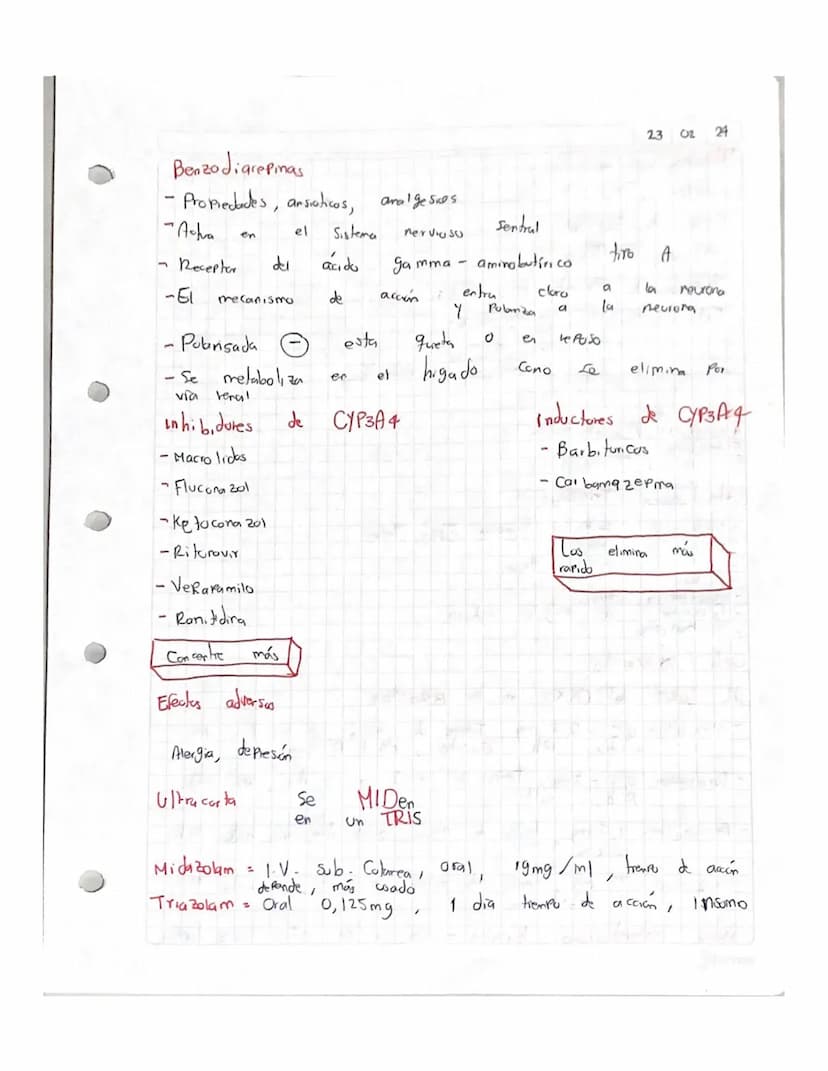 23 02 24
Benzodiacepinas
- Propiedades, ansioticos, analgesicos
- Actua en el sistema nervioso sentral
- Receptor del ácido gamma-aminobutírico tipo A
- El mecanismo de acción: entra cloro a la neurona
y Polariza a la neurona
- Polarisada (-) esta quieta o en reposo
- Se metaboliza en el higado como se elimina por
vía renal
Inhibidores de CYP3A4
Inductores de CYP3A4
- Macrolidos
- Barbituricos
- Fluconazol
- Carbamazepina
- Ketoconazol
- Ritonavir
Los elimina más
rapido
- Verapamilo
- Ranitidina
Concentre más
Efectos adversos
Alergia, depresión
Ultracorta Se MIDen
en un TRIS
Midazolam = I.V. sub. Cutanea, oral, 19mg/ml, tiempo de acción
depende, más usado
Triazolam = Oral 0,125mg, 1 dia tiempo de acción, insomo